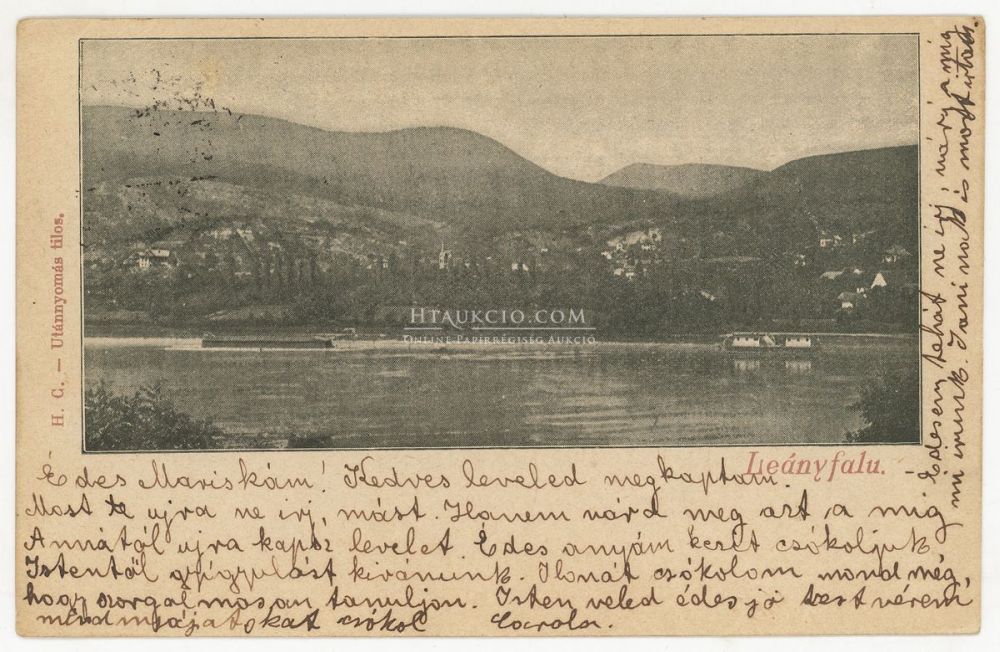 H. C. — Utánnyomás tilos.
HTAUKCIO.COM
ONLINE PAPÍRRÉGISÉG AUKCIÓ
Leányfalu.
Édes Mariskám! Kedves leveled megkaptam. –
Most te ujra ne irj, mást. Hanem várd meg azt a mig
Annától ujra kapsz levelet. Édes anyám kezét csókoljuk,
Istentől gyógyulást kivánunk. Ilonát csókolom mond még,
hogy szorgalmasan tanuljon. Isten veled édes jó testvérem
mindnyájatokat csókol Carola.
Édesem tehát ne irj várj a mig
mi irunk. Jani volt és most irtam.